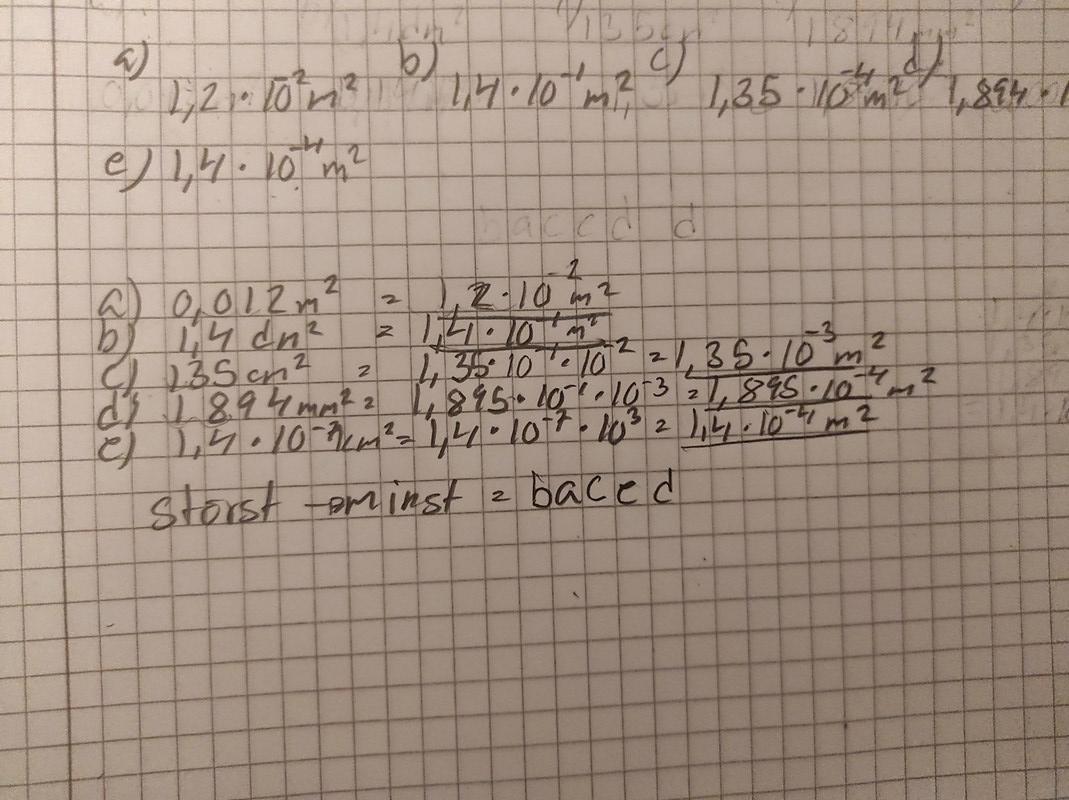 a) 1,2 · 10⁻² m² b) 1,4 · 10⁻¹ m² c) 1,35 · 10⁻⁴ m² d) 1,894 · 1
e) 1,4 · 10⁻⁴ m²
baccd d
a) 0,012 m² = 1,2 · 10⁻² m²
b) 1,4 dm² = 1,4 · 10⁻¹ m²
c) 135 cm² = 1,35 · 10⁻¹ · 10⁻² = 1,35 · 10⁻³ m²
d) 1894 mm² = 1,895 · 10⁻¹ · 10⁻³ = 1,895 · 10⁻⁴ m²
e) 1,4 · 10⁻⁷ km² = 1,4 · 10⁻⁷ · 10³ = 1,4 · 10⁻⁴ m²
storst → minst = baced